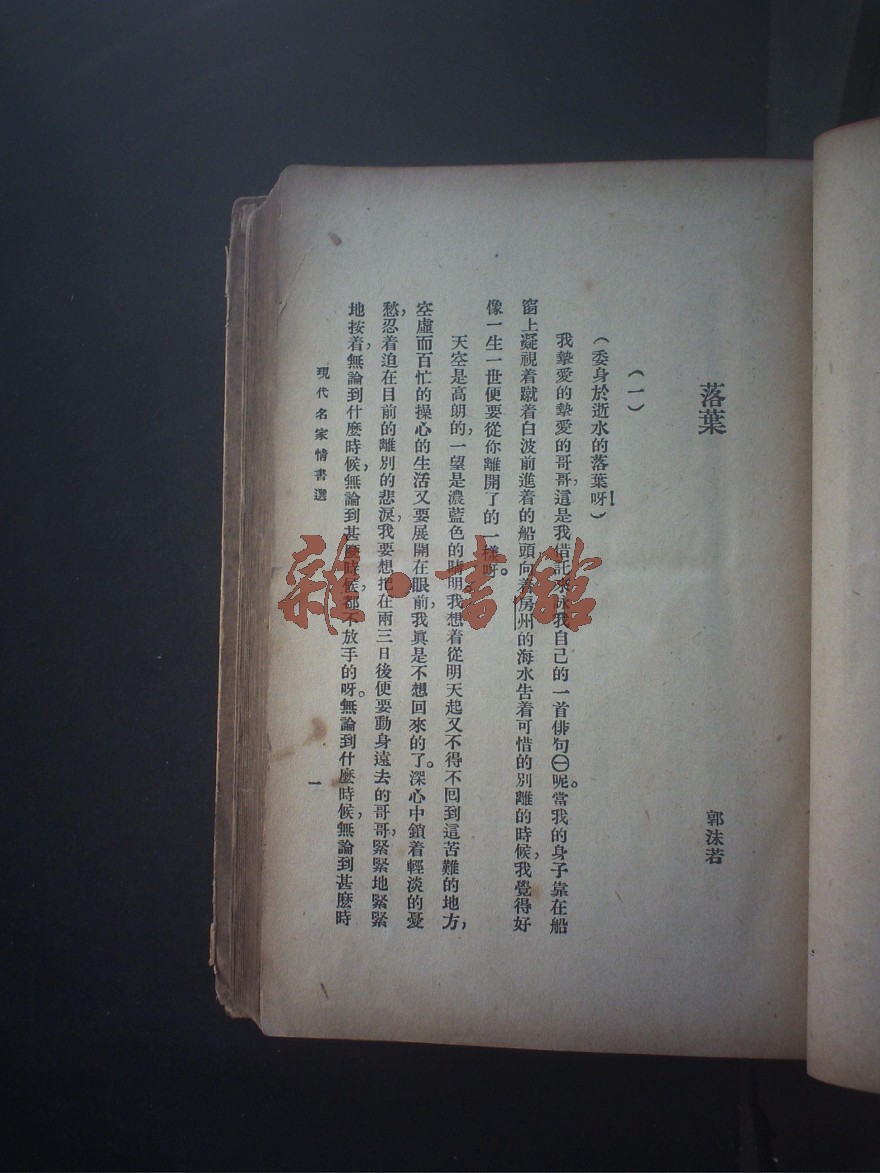 落葉
郭沫若
(一)
(委身於逝水的落葉呀！)
我摯愛的摯愛的哥哥，這是我借託來詠我自己的一首俳句㊀呢。當我的身子靠在船
窗上凝視着蹴着白波前進着的船頭向着房州的海水告着可惜的別離的時候，我覺得好
像一生一世便要從你離開了的一樣呀。
天空是高朗的，一望是濃藍色的晴明。我想着從明天起又不得不回到這苦難的地方，
空虛而百忙的操心的生活又要展開在眼前，我眞是不想回來的了。深心中鎖着輕淡的憂
愁，忍着迫在目前的離別的悲淚，我要想把在兩三日後便要動身遠去的哥哥，緊緊地緊緊
地按着，無論到什麼時候，無論到甚麼時候，都不放手的呀。無論到什麼時候，無論到甚麼時
現代名家情書選
一
雜·書館